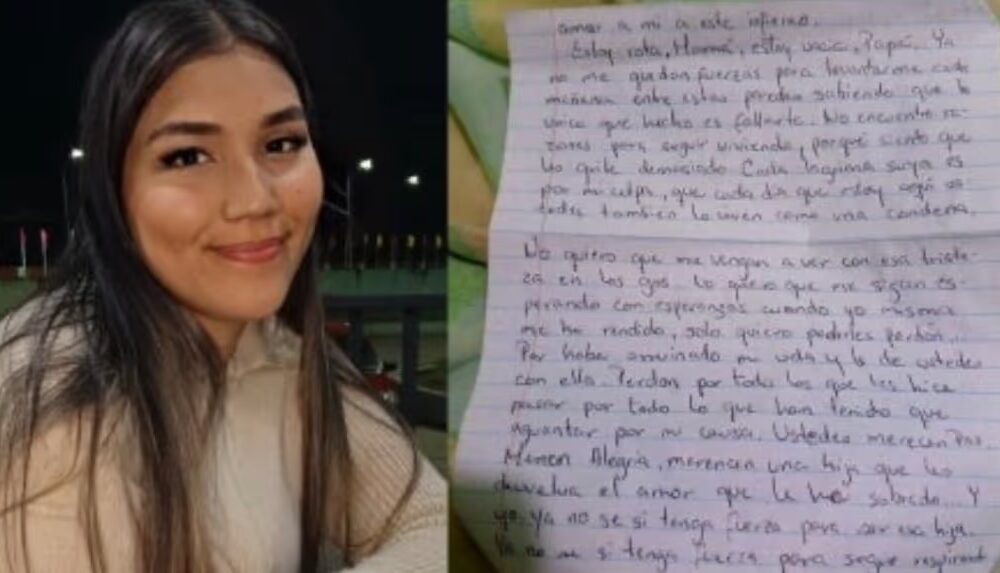 amor a mi a este infierno.
Estoy rota, Mamá, estoy vacia, Papá. Ya
no me quedan fuerzas para levantarme cada
mañana entre estas paredes sabiendo que lo
unico que hecho es fallarte. No encuentro ra-
zones para seguir viviendo, porque siento que
lo quite demasiado Cada lagrima suya es
por mi culpa, que cada dia que estoy aqui us
tedes tambien lo viven como una condena.
No quiero que me vengan a ver con esa triste-
za en los ojos. No quiero que me sigan es-
perando con esperanzas cuando yo misma
me he rendido, solo quiero pedirles perdón...
Por haber arruinado mi vida y la de ustedes
con ella. Perdon por todo los que les hice
pasar por todo lo que han tenido que
aguantar por mi causa. Ustedes merecen Paz.
Merecen Alegria, merencen una hija que les
devuelva el amor que le ha sobrado... Y
yo, ya no se si tenga fuerza para ser esa hija.
Ya no se si tenga fuerza para seguir respirando